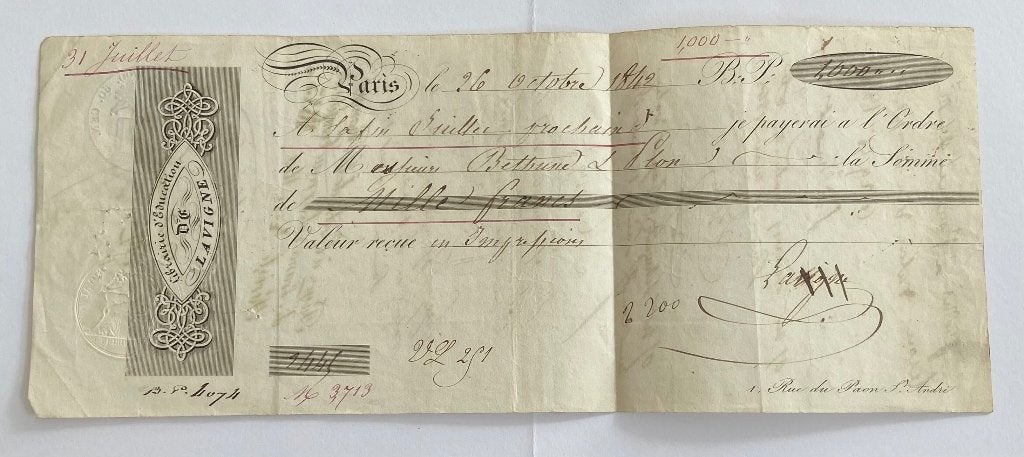 31 Juillet
1,000
Paris le 26 Octobre 1842 B.P. 1000
A la fin Juillet prochain je payerai a l'Ordre
de Messieurs Bethune & Plon la Somme
de Mille francs
Valeur reçue en Impressions
Librairie d'Education
DE
LAVIGNE
Lavigne
2 200
B.P. 4074
3713
1, Rue du Paon St. André